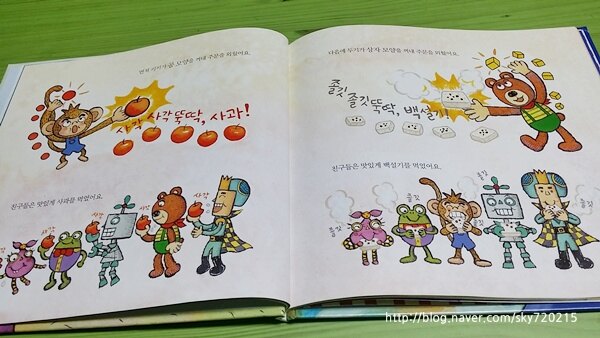 먼저 끼끼가 공 모양을 꺼내 주문을 외웠어요.
사각 사각 뚝딱, 사과!
친구들은 맛있게 사과를 먹었어요.
사각
사각
사각
사각
다음에 두기가 상자 모양을 꺼내 주문을 외웠어요.
쫄깃
쫄깃 뚝딱, 백설기!
친구들은 맛있게 백설기를 먹었어요.
쫄깃
쫄깃
쫄깃
쫄깃
http://blog.naver.com/sky720215